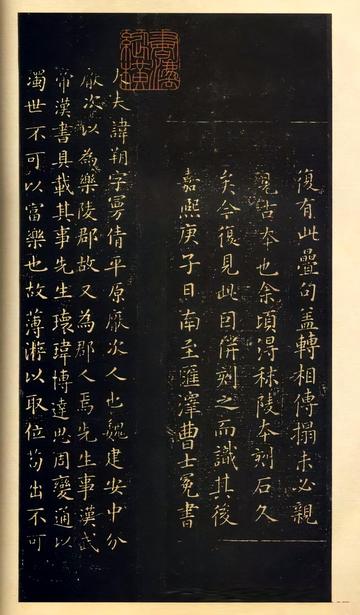 復有此疊句盖轉相傳搨未必親
覩古本也余頃得秣陵本刻石久
矣今復見此因併刻之而識其後
嘉熙庚子日南至匯澤曹士冕書
大夫諱朔字曼倩平原厭次人也魏建安中分
厭次以為樂陵郡故又為郡人焉先生事漢武
帝漢書具載其事先生瓌瑋博達思周變通以
濁世不可以富樂也故薄游以取位苟出不可